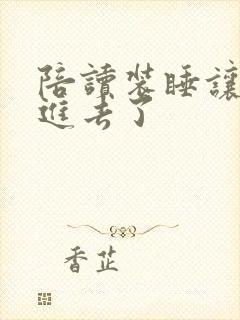 陪讀装睡讓
進去了
香芷